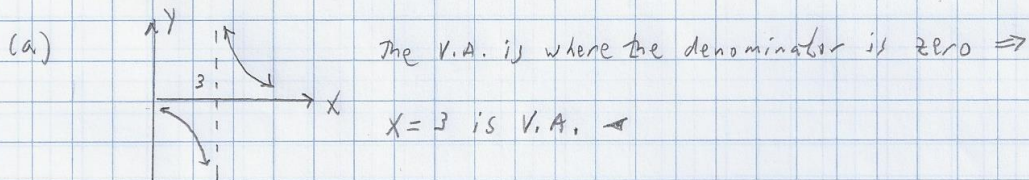 (a)
Y
3
X
The V.A. is where the denominator is zero ⇒
X = 3 is V.A.